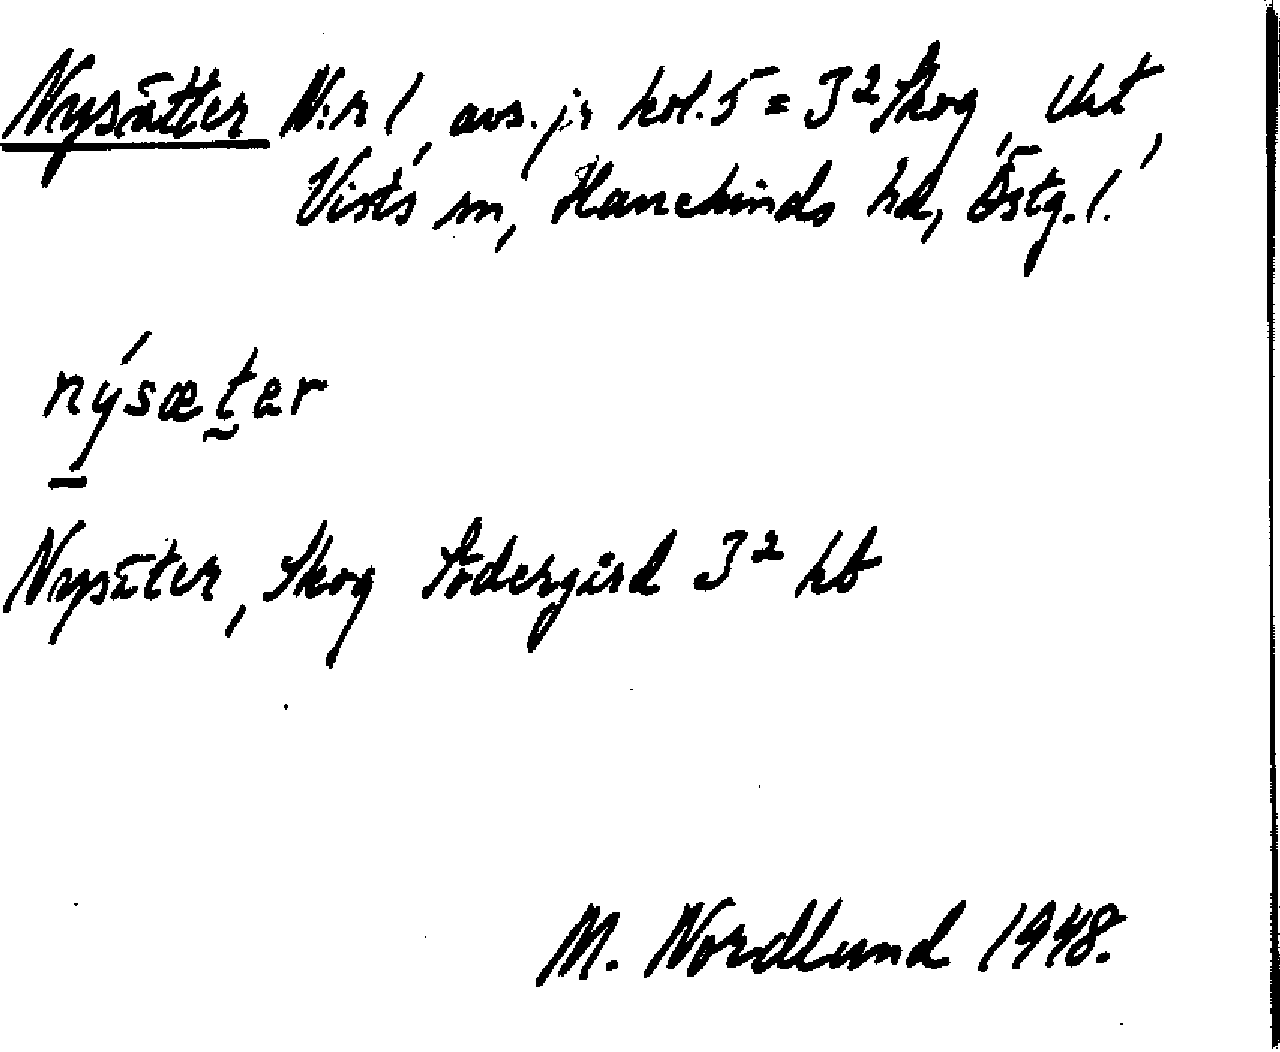 Nysätter N:r 1, avs. jr kol. 5 = 3² Skog, Ukt,
Vists sn, Hanekinds hd, Östg. l.
nýsæter
Nysäter, Skog Södergård 3² hb
M. Nordlund 1948.